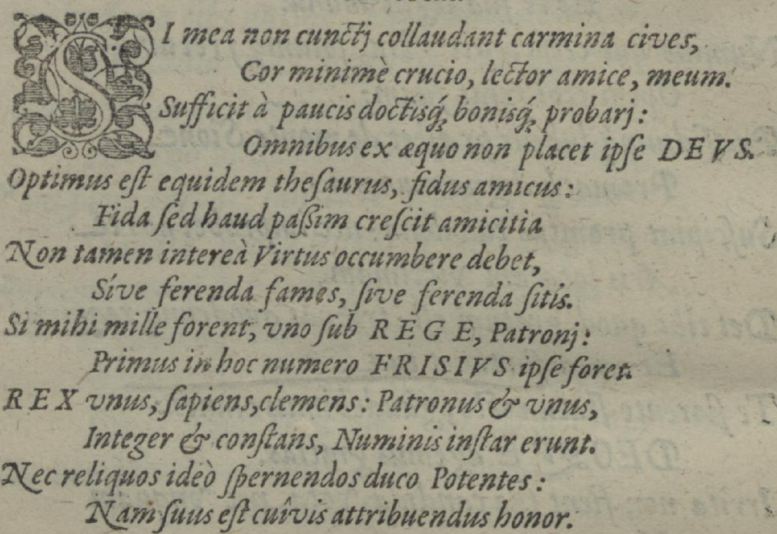 SI mea non cunctj collaudant carmina cives,
Cor minimè crucio, lector amice, meum.
Sufficit à paucis doctisq́; bonisq́; probarj:
Omnibus ex æquo non placet ipſe DEVS.
Optimus eſt equidem theſaurus, fidus amicus:
Fida ſed haud paßim creſcit amicitia
Non tamen intereà Virtus occumbere debet,
Sive ferenda fames, ſive ferenda ſitis.
Si mihi mille forent, vno ſub REGE, Patronj:
Primus in hoc numero FRISIVS ipſe foret.
REX vnus, ſapiens, clemens: Patronus & vnus,
Integer & conſtans, Numinis inſtar erunt.
Nec reliquos ideò ſpernendos duco Potentes:
Nam ſuus eſt cuîvis attribuendus honor.